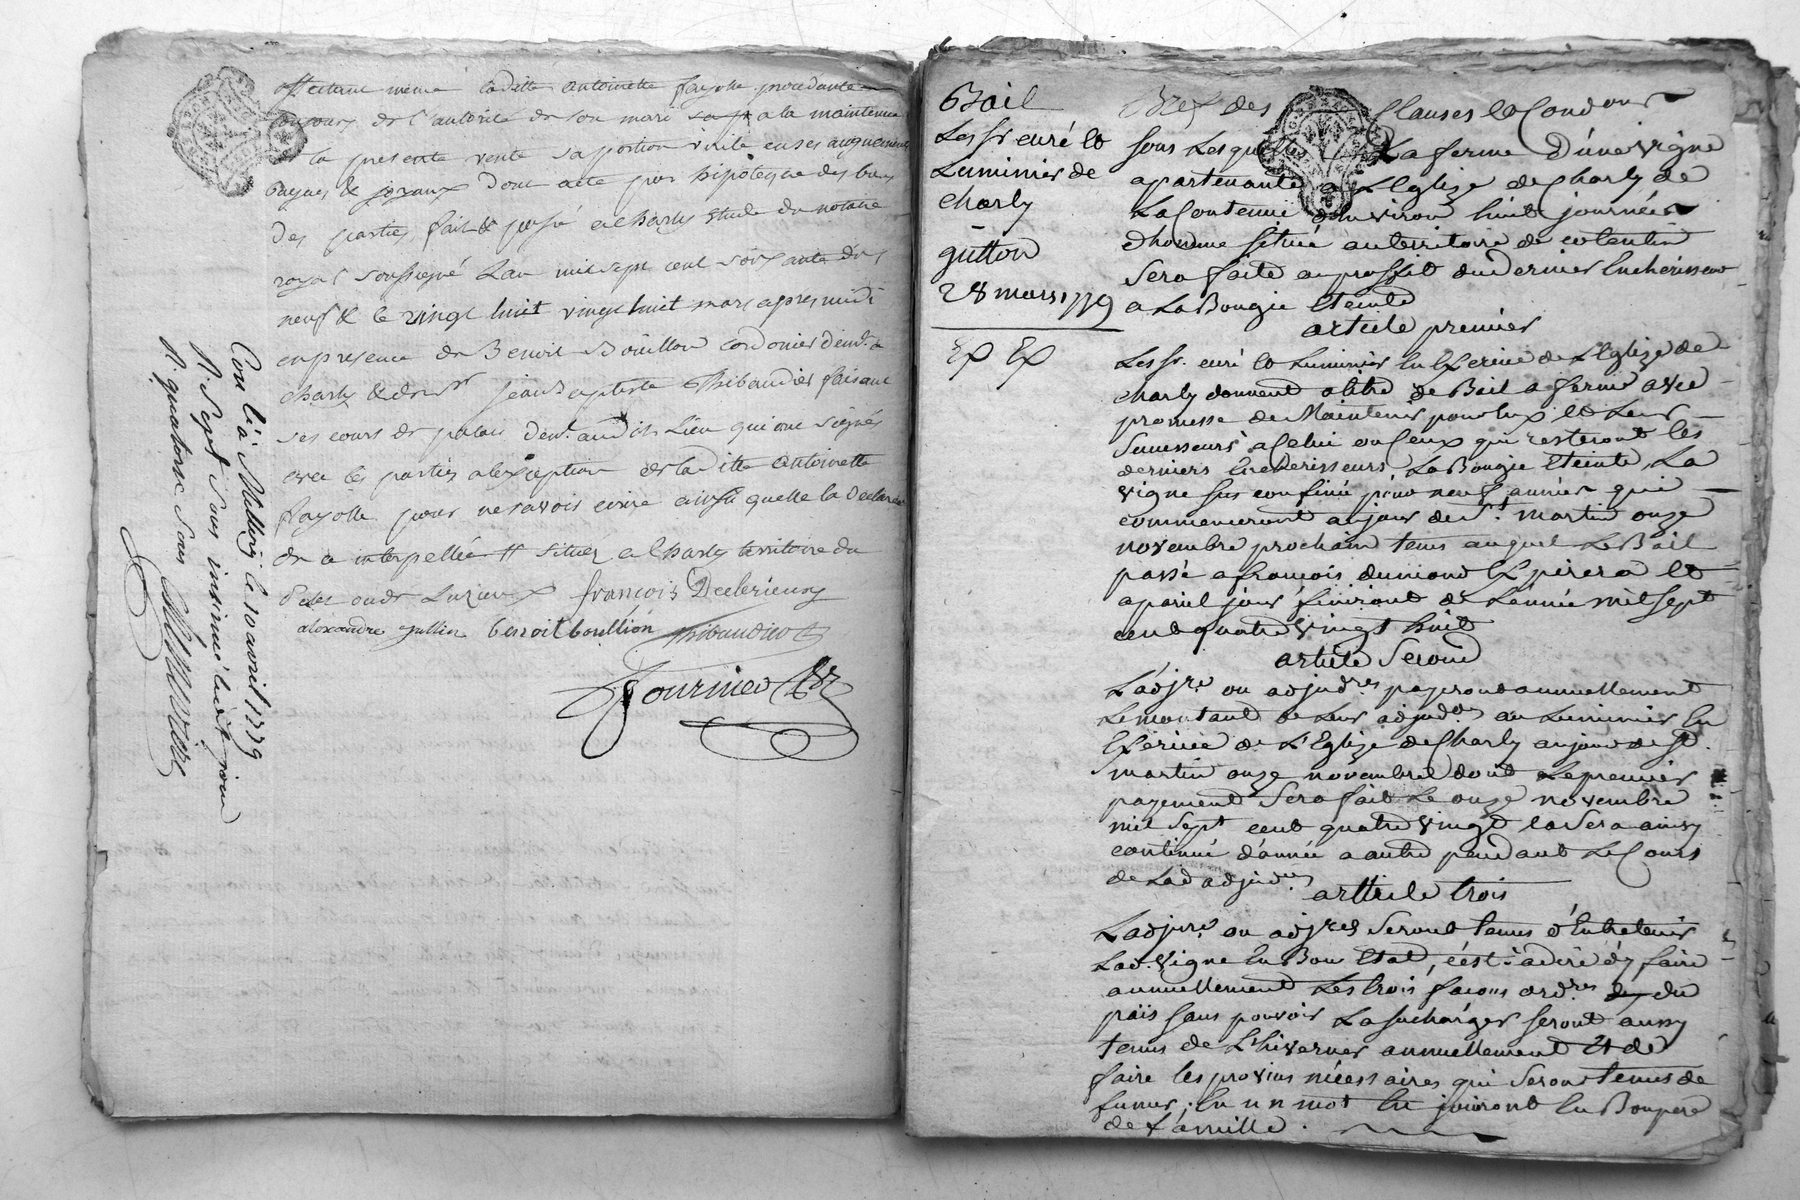 affectant même laditte antoinette fayolle procedante
toujours de l'autorité de son mari a la maintenue
de la presente vente sa portion virile en ses augments
bagues & joyaux dont acte par hipoteque des biens
des parties, fait & passé a Charly étude du notaire
royal soussigné L'an mil sept cent soixante dix
neuf & le vingt huit vingt huit mars apres midi
en presence de Benoit Bouillon cordonier demt. a
Charly & de sr. jean Baptiste Thibaudier faisant
ses cours de palais demt. audit Lieu qui ont signés
avec les parties a l'exception de laditte antoinette
fayolle pour ne savoir ecrire ainsi quelle la declaré
de ce interpellée // situés a Charly territoire du
françois Declerieux
alexandre gullin benoit boullion thibaudier
Fournier
Con lé a Millery le 10 avril 1779
R. Sept sous insinué ledit jour
R. quatorze sous
Bail
Les sr curé et
Luminier de
Charly
guitton
28 mars 1779
Ex Ex
Bref des Clauses et Conditions
sous Lesquelles La ferme D'une vigne
apartenante a L'Eglize de Charly de
La Contenue d'Environ huit journées
d'homme située au territoire de cotentin
sera faite au proffit du Dernier Encherisseur
a La Bougie Eteinte
article premier
Les sr. curé et Luminier En Exercice de L'Eglize de
Charly donnent a titre de Bail a ferme avec
promesse de Maintenir pour Eux et Leurs
Successeurs a Celui ou Ceux qui resteront les
derniers Encherisseurs La Bougie Eteinte, La
vigne sus confinée pour neuf années qui
commenceront au jour de St. martin onze
novembre prochain tems auquel Le Bail
passé a françois dumond Expirera et
a pareil jour finiront de L'année mil sept
cent quatre vingt huit
article Second
L'adjre. ou adjudres payeront annuellement
Le montant de Leur adjudon au Luminier En
Exercice de L'Eglize de Charly au jour de St.
martin onze novembre dont Le premier
payement Sera fait Le onze novembre
mil sept cent quatre vingt et Sera ainsy
continué d'année a autre pendant Le Cours
de Lad adjudon
artticle trois
L'adjre. ou adjres Seront tenus d'Entretenir
Lad. vigne En Bon Etat, c'est-a dire d'y faire
annuellement Les trois façons ordres du
païs sans pouvoir La surcharger seront aussy
tenus de L'hiverner annuellement Et de
faire les provins nécessaires qui Seront tenus de
fumer; En un mot En jouiront En Bon pere
de famille.